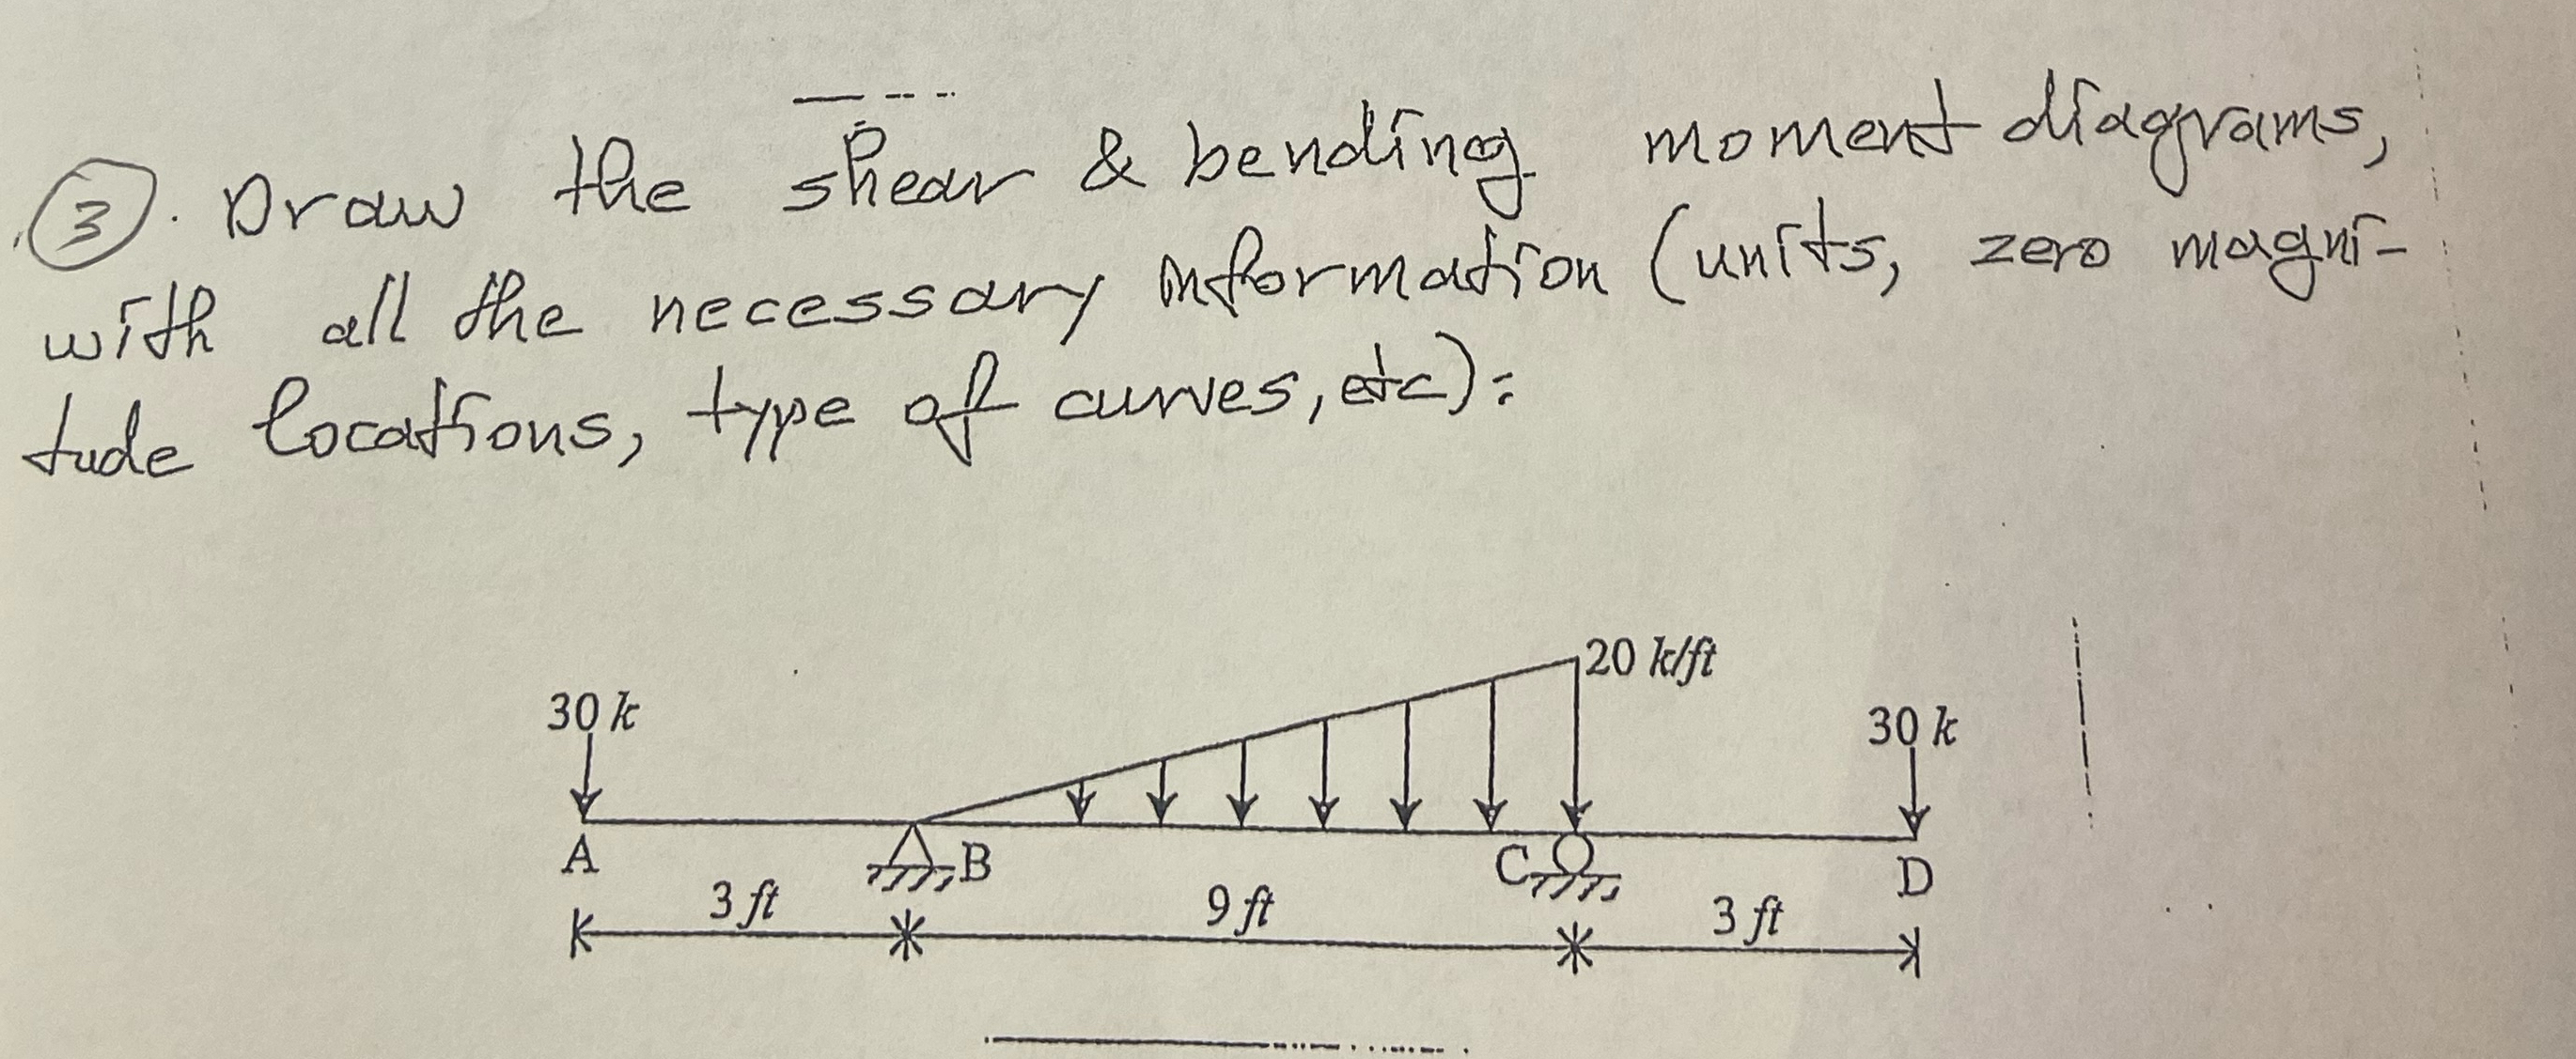 3. Draw the shear & bending moment diagrams,
with all the necessary information (units, zero magni-
tude locations, type of curves, etc):
20 k/ft
30 k
30 k
A
B
C
D
3 ft
9 ft
3 ft